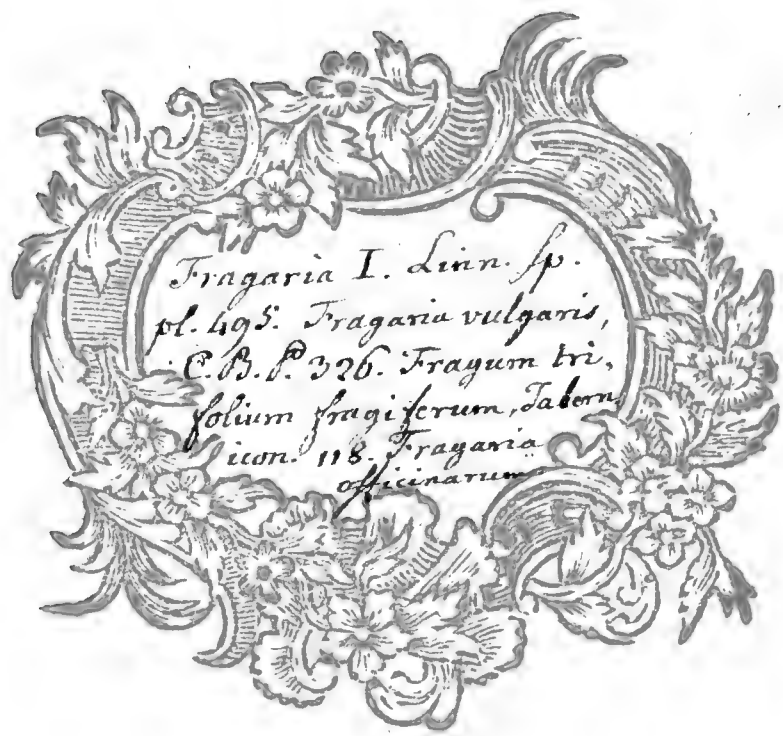 Fragaria I. Linn. sp.
pl. 495. Fragaria vulgaris,
C. B. P. 326. Fragum tri,
folium fragiferum, Tabern.
icon. 118. Fragaria
officinarum